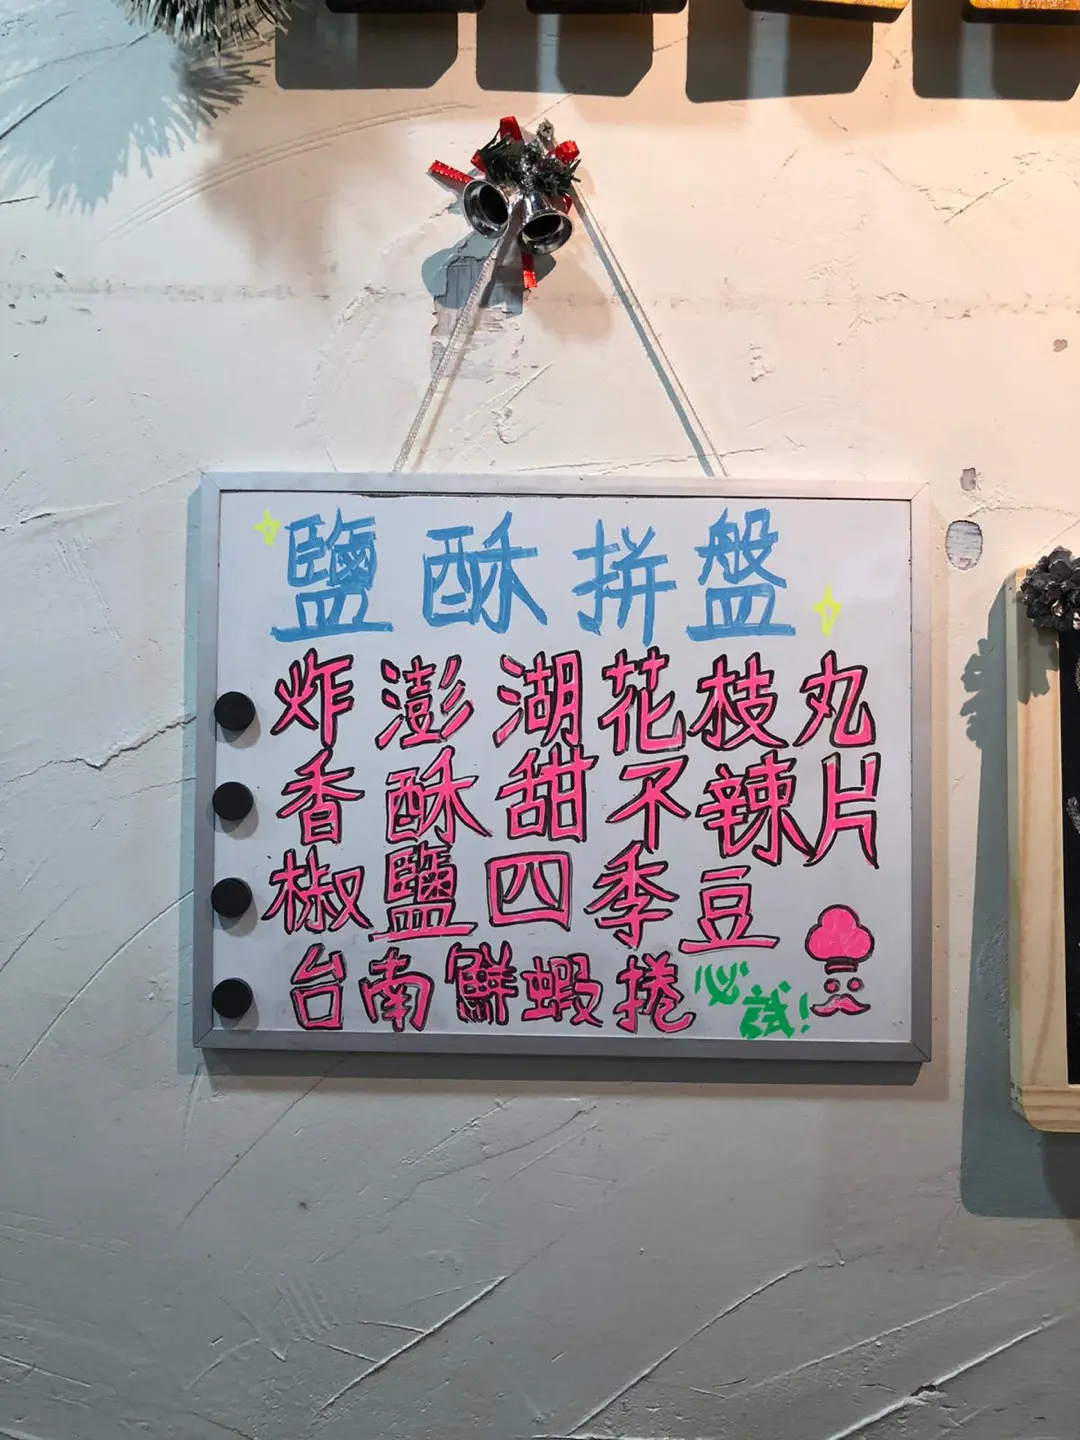 鹽酥拼盤
炸澎湖花枝丸
香酥甜不辣片
椒鹽四季豆
台南鮮蝦捲
必試!